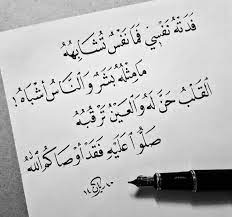 فَدَتْهُ نَفْسِي فَمَا نَفْسٌ تُشَابِهُهُ
مَا مِثْلُهُ بَشَرٌ وَالنَّاسُ أَشْبَاهُ !
القَلْبُ حَنَّ لَهُ وَالعَيْنُ تَرْقُبُهُ
صَلُّوا عَلَيْهِ فَقَدْ أَوْصَاكُمُ اللهُ